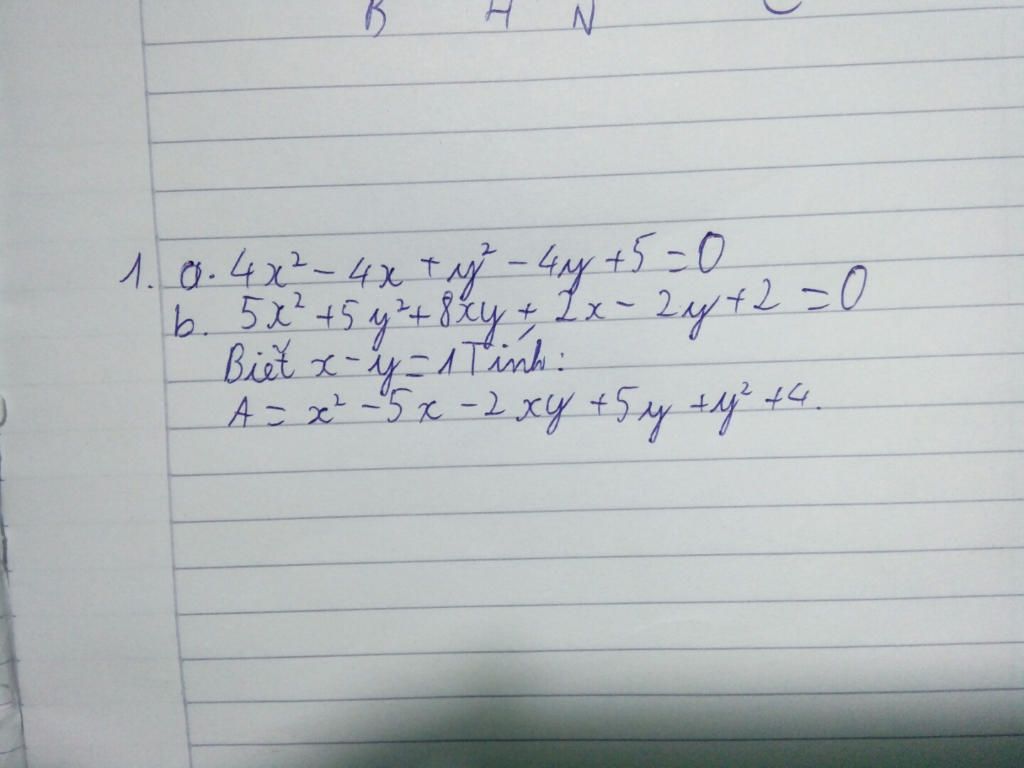 B H N
1. a. 4x² - 4x + y² - 4y + 5 = 0
b. 5x² + 5y² + 8xy + 2x - 2y + 2 = 0
Biết x - y = 1 Tính:
A = x² - 5x - 2xy + 5y + y² + 4.